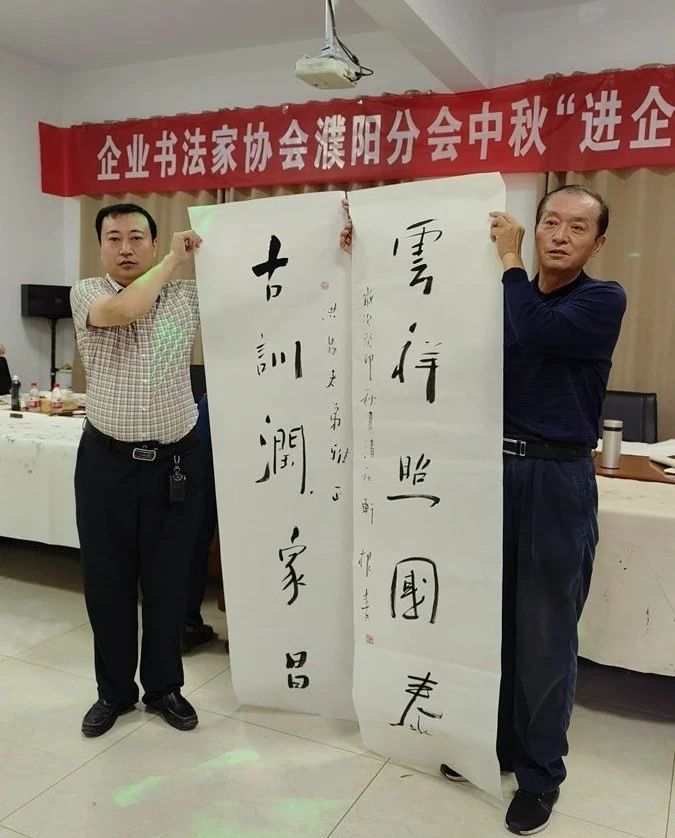 企业书法家协会濮阳分会中秋“进企
雲祥照國泰
歲次癸卯秋月清和軒根書
洪昌老弟雅正
古訓潤家昌